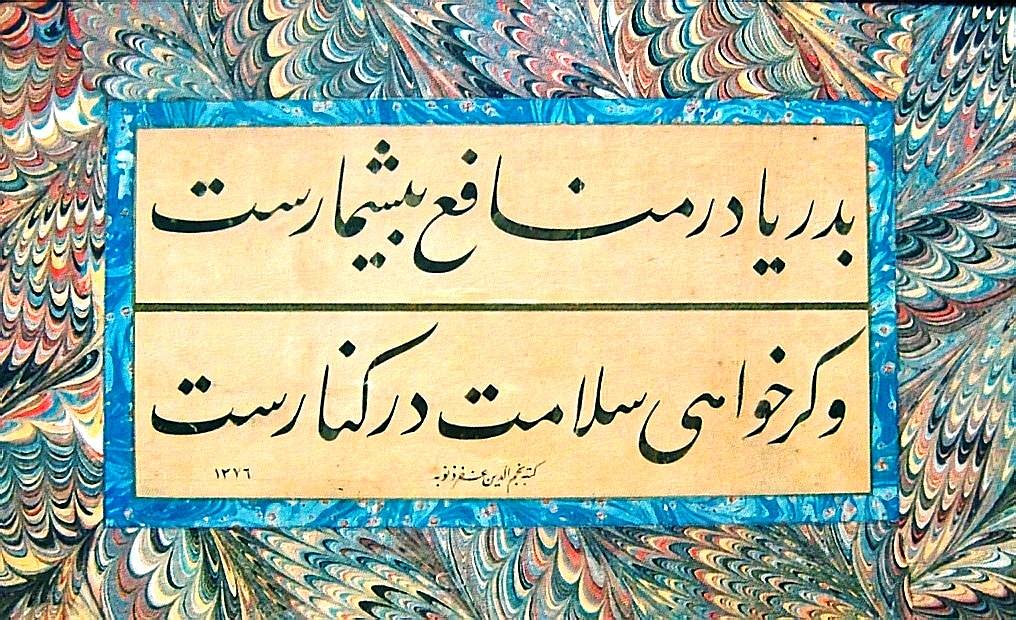 بدریا در منافع بیشمارست
وکر خواهی سلامت در کنارست
کتبه نجم الدین غفر ذنوبه ١٣٧٦